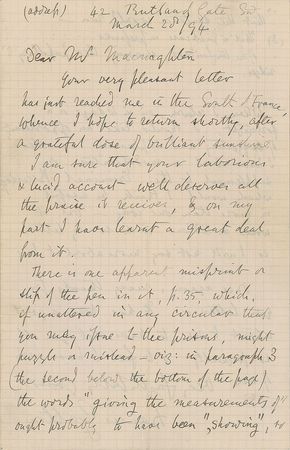 (address) 42 Rutland Gate SW
March 28/94
Dear Mr Macnaghten
Your very pleasant letter
has just reached me in the South of France,
whence I hope to return shortly, after
a grateful dose of brilliant sunshine.
I am sure that your laborious
& lucid account well deserves all
the praise it receives, & on my
part I have learnt a great deal
from it.
There is one apparent misprint or
slip of the pen in it, p. 35, which,
if unaltered in any circular that
you may issue to the prisons, might
puzzle or mislead – viz: in paragraph 3
(the second below the bottom of the page)
the words "giving the measurements of"
ought probably to have been "showing", so